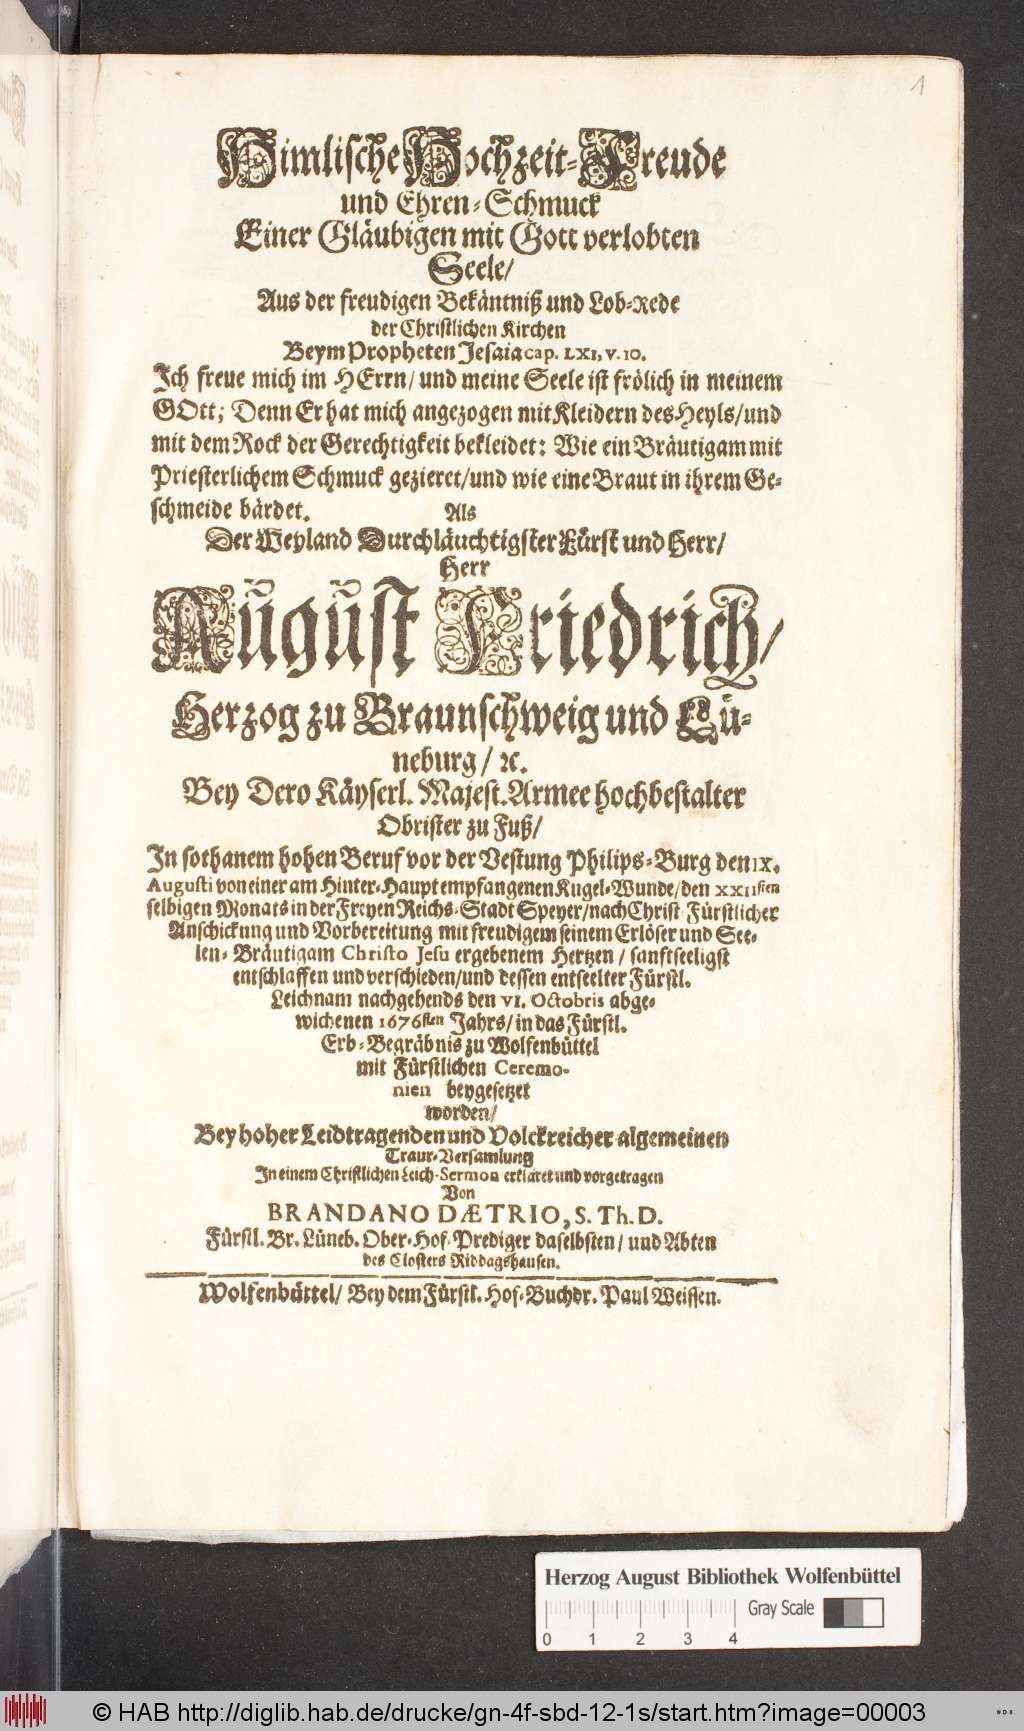 1
Himlische Hochzeit-Freude
und Ehren-Schmuck
Einer Gläubigen mit Gott verlobten
Seele/
Aus der freudigen Bekäntniß und Lob-Rede
der Christlichen Kirchen
Beym Propheten Jesaia cap. LXI, v. 10.
Ich freue mich im HErrn/ und meine Seele ist frölich in meinem
GOtt; Denn Er hat mich angezogen mit Kleidern des Heyls/und
mit dem Rock der Gerechtigkeit bekleidet: Wie ein Bräutigam mit
Priesterlichem Schmuck gezieret/und wie eine Braut in ihrem Ge-
schmeide bärdet.
Als
Der Weyland Durchläuchtigster Fürst und Herr/
Herr
August Friedrich/
Herzog zu Braunschweig und Lü-
neburg/ ꝛc.
Bey Dero Käyserl. Majest. Armee hochbestalter
Obrister zu Fuß/
In sothanem hohen Beruf vor der Vestung Philips-Burg den IX.
Augusti von einer am Hinter-Haupt empfangenen Kugel-Wunde/den XXIIsten
selbigen Monats in der Freyen Reichs-Stadt Speyer/nach Christ Fürstlicher
Anschickung und Vorbereitung mit freudigem seinem Erlöser und See-
len-Bräutigam Christo Jesu ergebenem Hertzen/ sanftseeligst
entschlaffen und verschieden/und dessen entseelter Fürstl.
Leichnam nachgehends den VI. Octobris abge-
wichenen 1676sten Jahrs/in das Fürstl.
Erb-Begräbnis zu Wolfenbüttel
mit Fürstlichen Ceremo-
nien beygesetzet
worden/
Bey hoher Leidtragenden und Volckreicher algemeinen
Traur-Versamlung
In einem Christlichen Leich-Sermon erkläret und vorgetragen
Von
BRANDANO DÆTRIO, S. Th. D.
Fürstl. Br. Lüneb. Ober-Hof-Prediger daselbsten/ und Abten
des Closters Riddagshausen.
Wolfenbüttel/ Bey dem Fürstl. Hof-Buchdr. Paul Weissen.
Herzog August Bibliothek Wolfenbüttel
Gray Scale
0 1 2 3 4
© HAB http://diglib.hab.de/drucke/gn-4f-sbd-12-1s/start.htm?image=00003